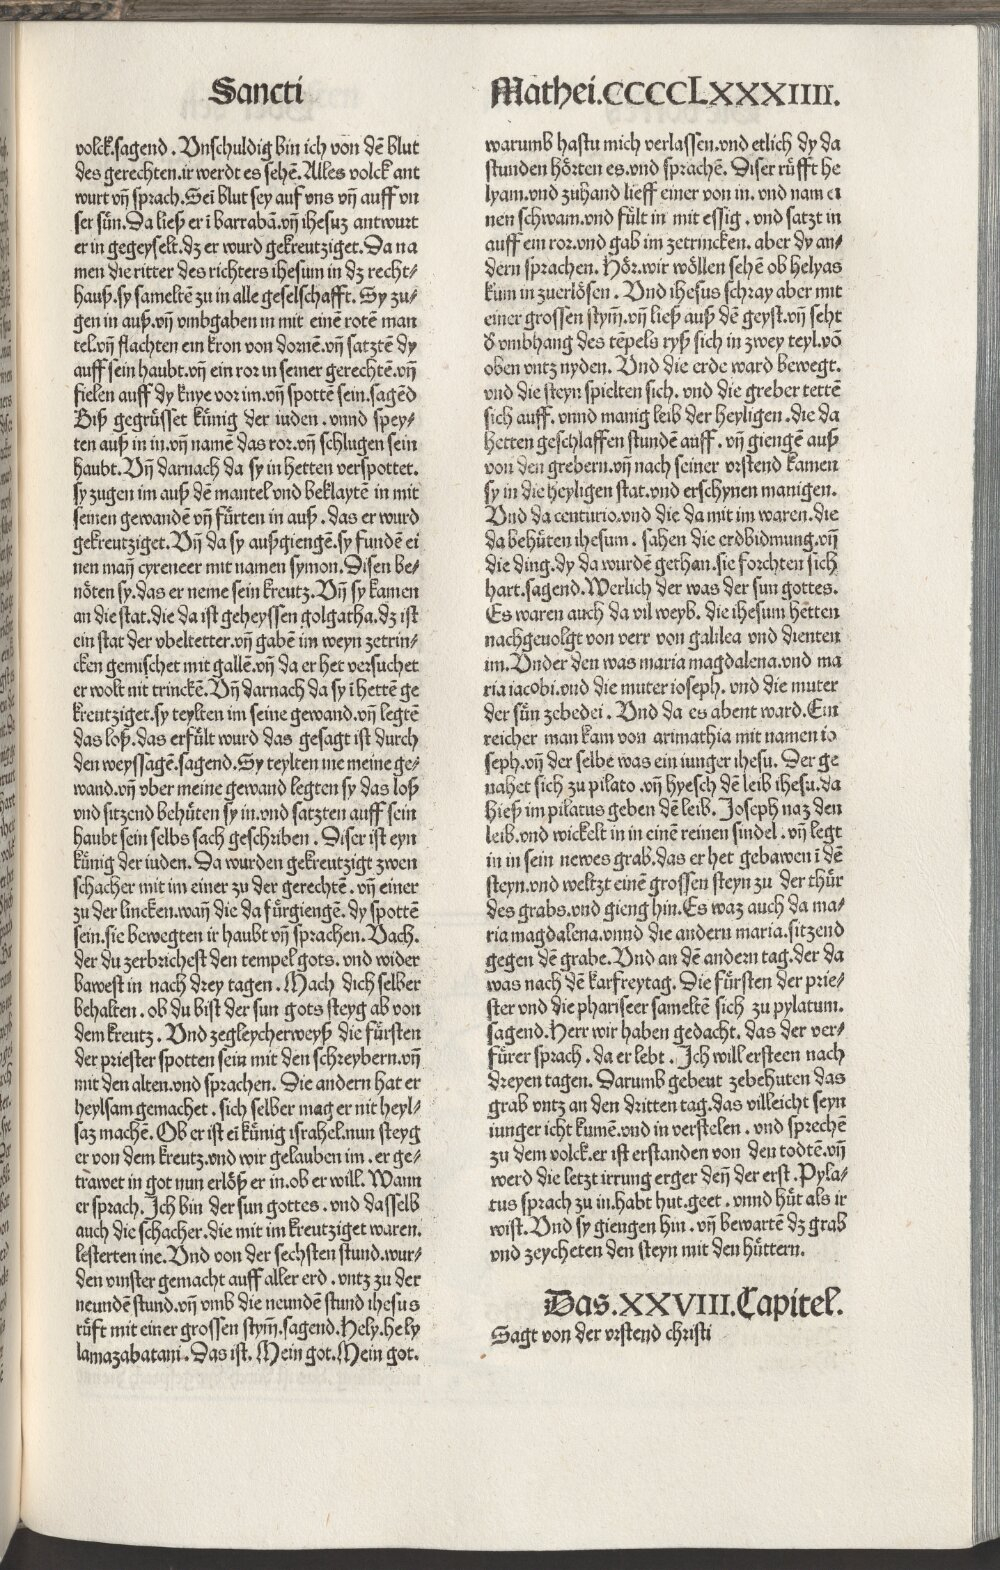 Sancti
volck.sagend. Vnschuldig bin ich von dẽ blut
des gerechten.ir werdt es sehẽ.Alles volck ant
wurt vñ sprach.Sei blut sey auf vns vñ auff vn
ser sün.Da ließ er ĩ barrabã.vñ ihesuz antwurt
er in gegeyselt.dz er wurd gekreutziget.Da na
men die ritter des richters ihesum in dz recht-
hauß.sy sameltẽ zu in alle geselschafft. Sy zu-
gen in auß.vñ vmbgaben in mit einẽ rotẽ man
tel.vñ flachten ein kron von dornẽ.vñ satztẽ dy
auff sein haubt.vñ ein ror in seiner gerechtẽ.vñ
fielen auff dy knye vor im.vñ spottẽ sein.sagẽd
Biß gegrüsset künig der iuden .vnnd spey-
ten auß in in.vñ namẽ das ror.vñ schlugen sein
haubt.Vñ darnach da sy in hetten verspottet.
sy zugen im auß dẽ mantel vnd beklaytẽ in mit
seinen gewandẽ vñ fürten in auß .das er wurd
gekreutziget.Vñ da sy außgiengẽ.sy fundẽ ei
nen mañ cyreneer mit namen symon.Disen be-
nöten sy.das er neme sein kreutz.Vñ sy kamen
an die stat.die da ist geheyssen golgatha.dz ist
ein stat der vbeltetter.vñ gabẽ im weyn zetrin-
cken gemischet mit gallẽ.vñ da er het versuchet
er wolt nit trinckẽ.Vñ darnach da sy ĩ hettẽ ge
kreutziget.sy teylten im seine gewand.vñ legtẽ
das loß.das erfült wurd das gesagt ist durch
den weyssagẽ.sagend.Sy teylten ine meine ge-
wand.vñ vber meine gewand legten sy das loß
vnd sitzend behüten sy in.vnd satzten auff sein
haubt sein selbs sach geschriben . Diser ist eyn
künig der iuden. Da wurden gekreutzigt zwen
schacher mit im einer zu der gerechtẽ .vñ einer
zu der lincken.wañ die da fürgiengẽ. dy spottẽ
sein.sie bewegten ir haubt vñ sprachen. Vach.
der du zerbrichest den tempel gots. vnd wider
bawest in nach drey tagen . Mach dich selber
behalten . ob du bist der sun gots steyg ab von
dem kreutz . Vnd zegleycherweyß die fürsten
der priester spotten sein mit den schreybern.vñ
mit den alten.vnd sprachen. Die andern hat er
heylsam gemachet .sich selber mag er nit heyl-
saz machẽ. Ob er ist eĩ künig israhel.nun steyg
er von dem kreutz.vnd wir gelauben im . er ge-
trawet in got nun erlöß er in.ob er will. Wann
er sprach. Ich bin der sun gottes .vnd dasselb
auch die schacher.die mit im kreutziget waren.
lesterten ine. Vnd von der sechsten stund.wur-
den vinster gemacht auff aller erd .vntz zu der
neundẽ stund.vñ vmb die neundẽ stund ihesus
rüft mit einer grossen stym̃.sagend.Hely.hely
lamazabatani. Das ist. Mein got.Mein got.
Mathei.CCCCLXXXIIII.
warumb hastu mich verlassen.vnd etlich dy da
stunden hörten es.vnd sprachẽ. Diser rüfft he
lyam.vnd zuhand lieff einer von in. vnd nam ei
nen schwam.vnd fült in mit essig .vnd satzt in
auff ein ror.vnd gab im zetrincken. aber dy an-
dern sprachen. Hör.wir wöllen sehẽ ob helyas
kum in zuerlösen . Vnd ihesus schray aber mit
einer grossen stym̃.vñ ließ auß dẽ geyst.vñ seht
d vmbhang des tẽpels ryß sich in zwey teyl.võ
oben vntz nyden. Vnd die erde ward bewegt.
vnd die steyn spielten sich. vnd die greber tettẽ
sich auff. vnnd manig leib der heyligen .die da
hetten geschlaffen stundẽ auff . vñ giengẽ auß
von den grebern.vñ nach seiner vrstend kamen
sy in die heyligen stat.vnd erschynen manigen.
Vnd da centurio.vnd die da mit im waren.die
da behüten ihesum . sahen die erdbidmung.vñ
die ding.dy da wurdẽ gethan.sie forchten sich
hart.sagend.Werlich der was der sun gottes.
Es waren auch da vil weyb. die ihesum hetten
nachgeuolgt von verr von galilea vnd dienten
im.Vnder den was maria magdalena.vnd ma
ria iacobi.vnd die muter ioseph. vnd die muter
der sün zebedei . Vnd da es abent ward.Ein
reicher man kam von arimathia mit namen io
seph.vñ der selbe was ein iunger ihesu. Der ge
nahet sich zu pilato .vñ hyesch dẽ leib ihesu.da
hieß im pilatus geben dẽ leib. Joseph naz den
leib.vnd wickelt in in einẽ reinen sindel . vñ legt
in in sein newes grab.das er het gebawen ĩ dẽ
steyn.vnd weltzt einẽ grossen steyn zu der thür
des grabs.vnd gieng hin.Es waz auch da ma-
ria magdalena.vnnd die andern maria.sitzend
gegen dẽ grabe. Vnd an dẽ andern tag.der da
was nach dẽ karfreytag. Die fürsten der prie-
ster vnd die phariseer sameltẽ sich zu pylatum.
sagend.Herr wir haben gedacht. das der ver-
fürer sprach . da er lebt . Ich will ersteen nach
dreyen tagen. Darumb gebeut zebehuten das
grab vntz an den dritten tag.das villeicht seyn
iunger icht kumẽ.vnd in verstelen . vnd sprechẽ
zu dem volck.er ist erstanden von den todtẽ.vñ
werd die letzt irrung erger deñ der erst . Pyla-
tus sprach zu in.habt hut.geet . vnnd hüt als ir
wist.Vnd sy giengen hin . vñ bewartẽ dz grab
vnd zeycheten den steyn mit den hüttern.
Das.XXVIII.Capitel.
Sagt von der vrstend christi